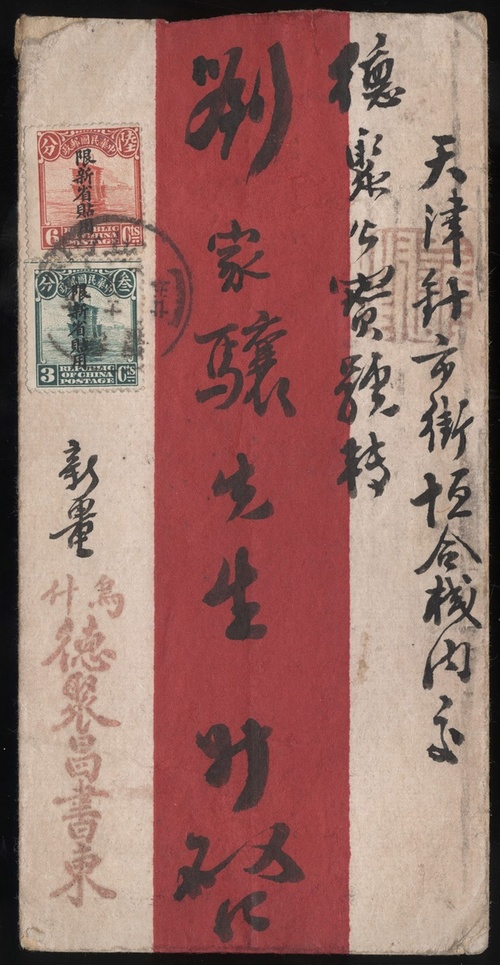 天津針市街恒合棧內交
德聚公寶號轉
劉家驤先生升啟
新疆
烏什
德聚昌書柬
中華民國郵政
陸
分
限新省貼用
6 Cts
REPUBLIC
OF CHINA
POSTAGE
中華民國郵政
叁
分
限新省貼用
3 Cts
REPUBLIC
OF CHINA
POSTAGE